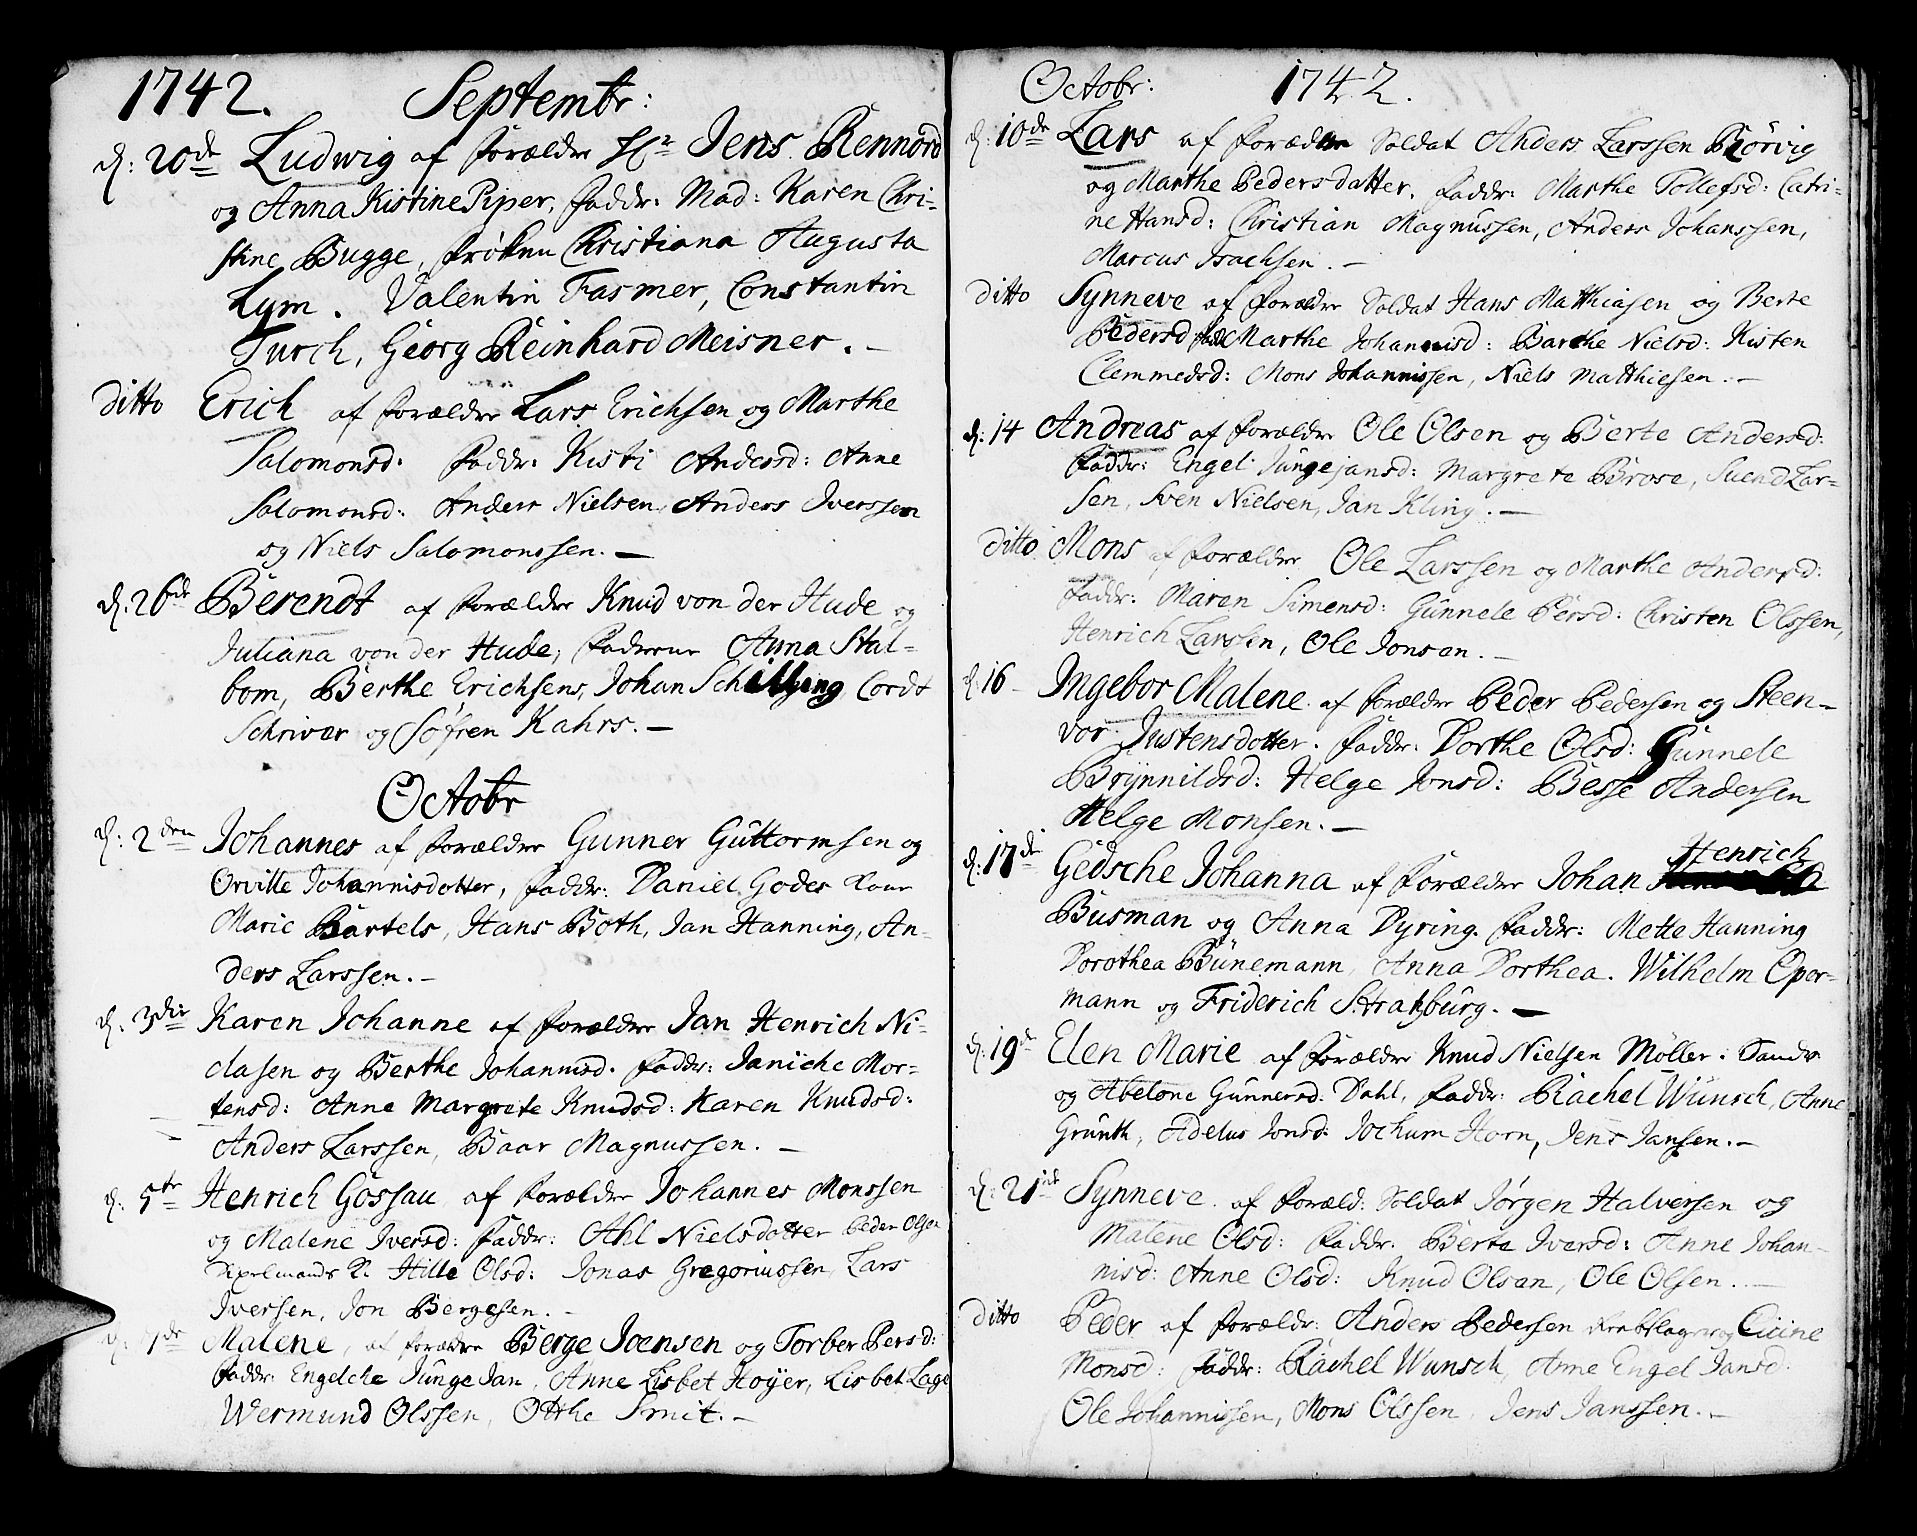 1742. Septembr:
d: 20de Ludwig af forældre Hr Jens Rennord
og Anna Kistine Piper, faddr: Mad: Karen Chri-
stine Bugge, frøken Christiana Augusta
Lym. Valentin Fasmer, Constantin
Turch, Georg Reinhard Meisner. —
ditto Erich af forældre Lars Erichsen og Marthe
Salomonsd: faddr: Kisti Andersd: Anne
Salomonsd: Anders Nielsen, Anders Iverssen
og Niels Salomonssen. —
d: 26de Berendt af forældre Knud von der Hude og
Juliana von der Hude, fadderne Anna Stal-
bom, Berthe Erichsens, Johan Schilling, Cordt
Schriver og Søfren Kahrs. —
Octobr
d: 2den Johannes af forældre Gunner Guttormsen og
Orville Johannisdotter, faddr: Daniel Godes Kone
Marie Bartels, Hans Both, Jan Hanning, An-
ders Larssen. —
d: 3die Karen Johanne af forældre Jan Henrich Ni-
clasen og Berthe Johannisd. faddr: Janiche Mor-
tensd: Anne Margrete Knudsd: Karen Knudsd:
Anders Larssen, Baar Magnussen. —
d: 5te Henrich Gossau af forældre Johannes Monssen
og Malene Iversd: faddr: Ahl Nielsdotter Peder Olsen
K. Hille Olsd: Jonas Gregoriussen, Lars
Iversen, Jon Bergesen. —
d: 7de Malene, af forældre Berge Joensen og Torber Persd:
faddr: Engelche Junge Jan, Anne Lisbet Hoÿer, Lisbet Lage
Wermund Olssen, Otthe Smit. —
Octobr: 1742.
d: 10de Lars af forældre Soldat Anders Larssen Børvig
og Marthe Pedersdatter. faddr: Marthe Tollefsd: Catri-
ne Hansd: Christian Magnussen, Anders Johanssen,
Marcus Isachsen. —
ditto Synneve af forældre Soldat Hans Matthiasen og Berte
Pedersd fadd Marthe Johannisd: Barthe Nielsd: Kisten
Clemmedsd: Mons Johannissen, Niels Matthiesen. —
d: 14 Andreas af forældre Ole Olsen og Berte Andersd:
faddr: Engel Jungejansd: Margrete Brose, Suend Lar-
sen, Sven Nielsen, Jan Kling. —
ditto Mons af forældre Ole Larssen og Marthe Andersd:
faddr: Maren Simensd: Gunnele Persd: Christen Olssen,
Henrich Larssen, Ole Jonsen. —
d. 16 - Ingebor Malene af forældre Peder Pedersen og Steen-
vor Justensdotter. faddr: Dorthe Olsd: Gunnele
Brÿnnildsd: Helge Jonsd: Besse Andersen
Helge Monsen. —
d: 17de Gedsche Johanna af forældre Johan Henrich
Busman og Anna Dyring. faddr: Mette Hanning
Dorothea Bünemann, Anna Dorthea. Wilhelm Oper-
mann og Friderich Stratzburg. —
d: 19de Elen Marie af forældre Knud Nielsen Møller
og Abelone Gunnersd: Dahl, faddr: Rachel Wunsch, Anne
Grunth, Adelus Jonsd: Jochum Horn, Jens Jansen. —
d: 21de Synneve af foræld: Soldat Jørgen Halversen og
Malene Olsd: faddr: Berte Iversd: Anne Johan-
nisd: Anne Olsd: Knud Olsen, Ole Olsen. —
ditto Peder af forældr: Anders Pedersen og Citine
Monsd: faddr: Rachel Wunsch, Anne Engel Jansd.
Ole Johannissen, Mons Olssen, Jens Janssen. —